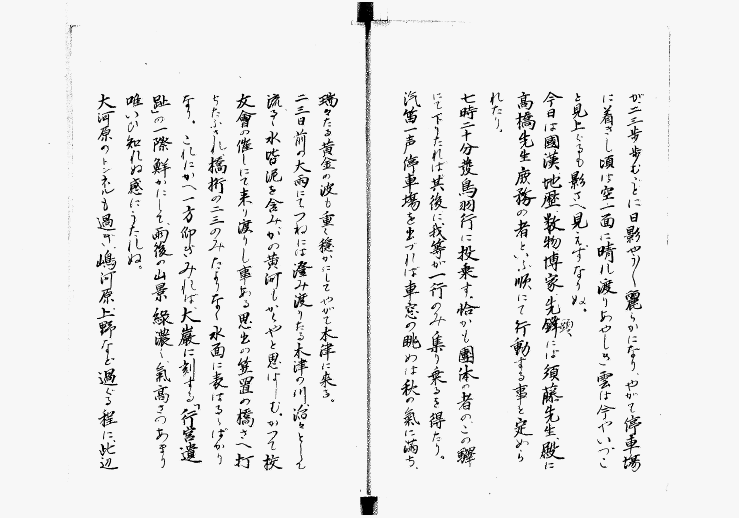 が二三歩歩むごとに日影やう〳〵麗らかになり、やがて停車場
に着きし頃は空一面に晴れ渡りあやしき雲は今やいづこ
と見上ぐるも影さへ見えずなりぬ。
今日は國漢、地歴、数物博家、先鋒には須藤先生、殿に
頭、
高橋先生、庶務の者といふ順にて行動する事と定めら
れたり。
七時二十分發鳥羽行に投乗す。恰かも團体の者のこの驛
にて下りたれば其後に我等が一行のみ集り乗るを得たり。
汽笛一声停車場を出づれば車窓の眺めは秋の氣に満ち、
瑞々たる黄金の波も重く穏かにしてやがて木津に来る。
二三日前の大雨にてつねには澄み渡りたる木津の川、滔々として
流るゝ水皆泥を含みかの黄河もかくやと思はしむ。かつて校
友會の催しにて来り渡りし事ある思出の笠置の橋さへ打
ちたふされ橋桁の二三のみたよりなく水面に表はるゝばかり
なり。これにかへ一方仰ぎみれば大巌に刻する「行宮遺
趾」の一際鮮かにして、雨後の山景緑濃く氣高さのあまり
唯いひ知れぬ感にうたれぬ。
大河原のトンネルも過ぎ、嶋河原、上野など過ぐる程に、此辺